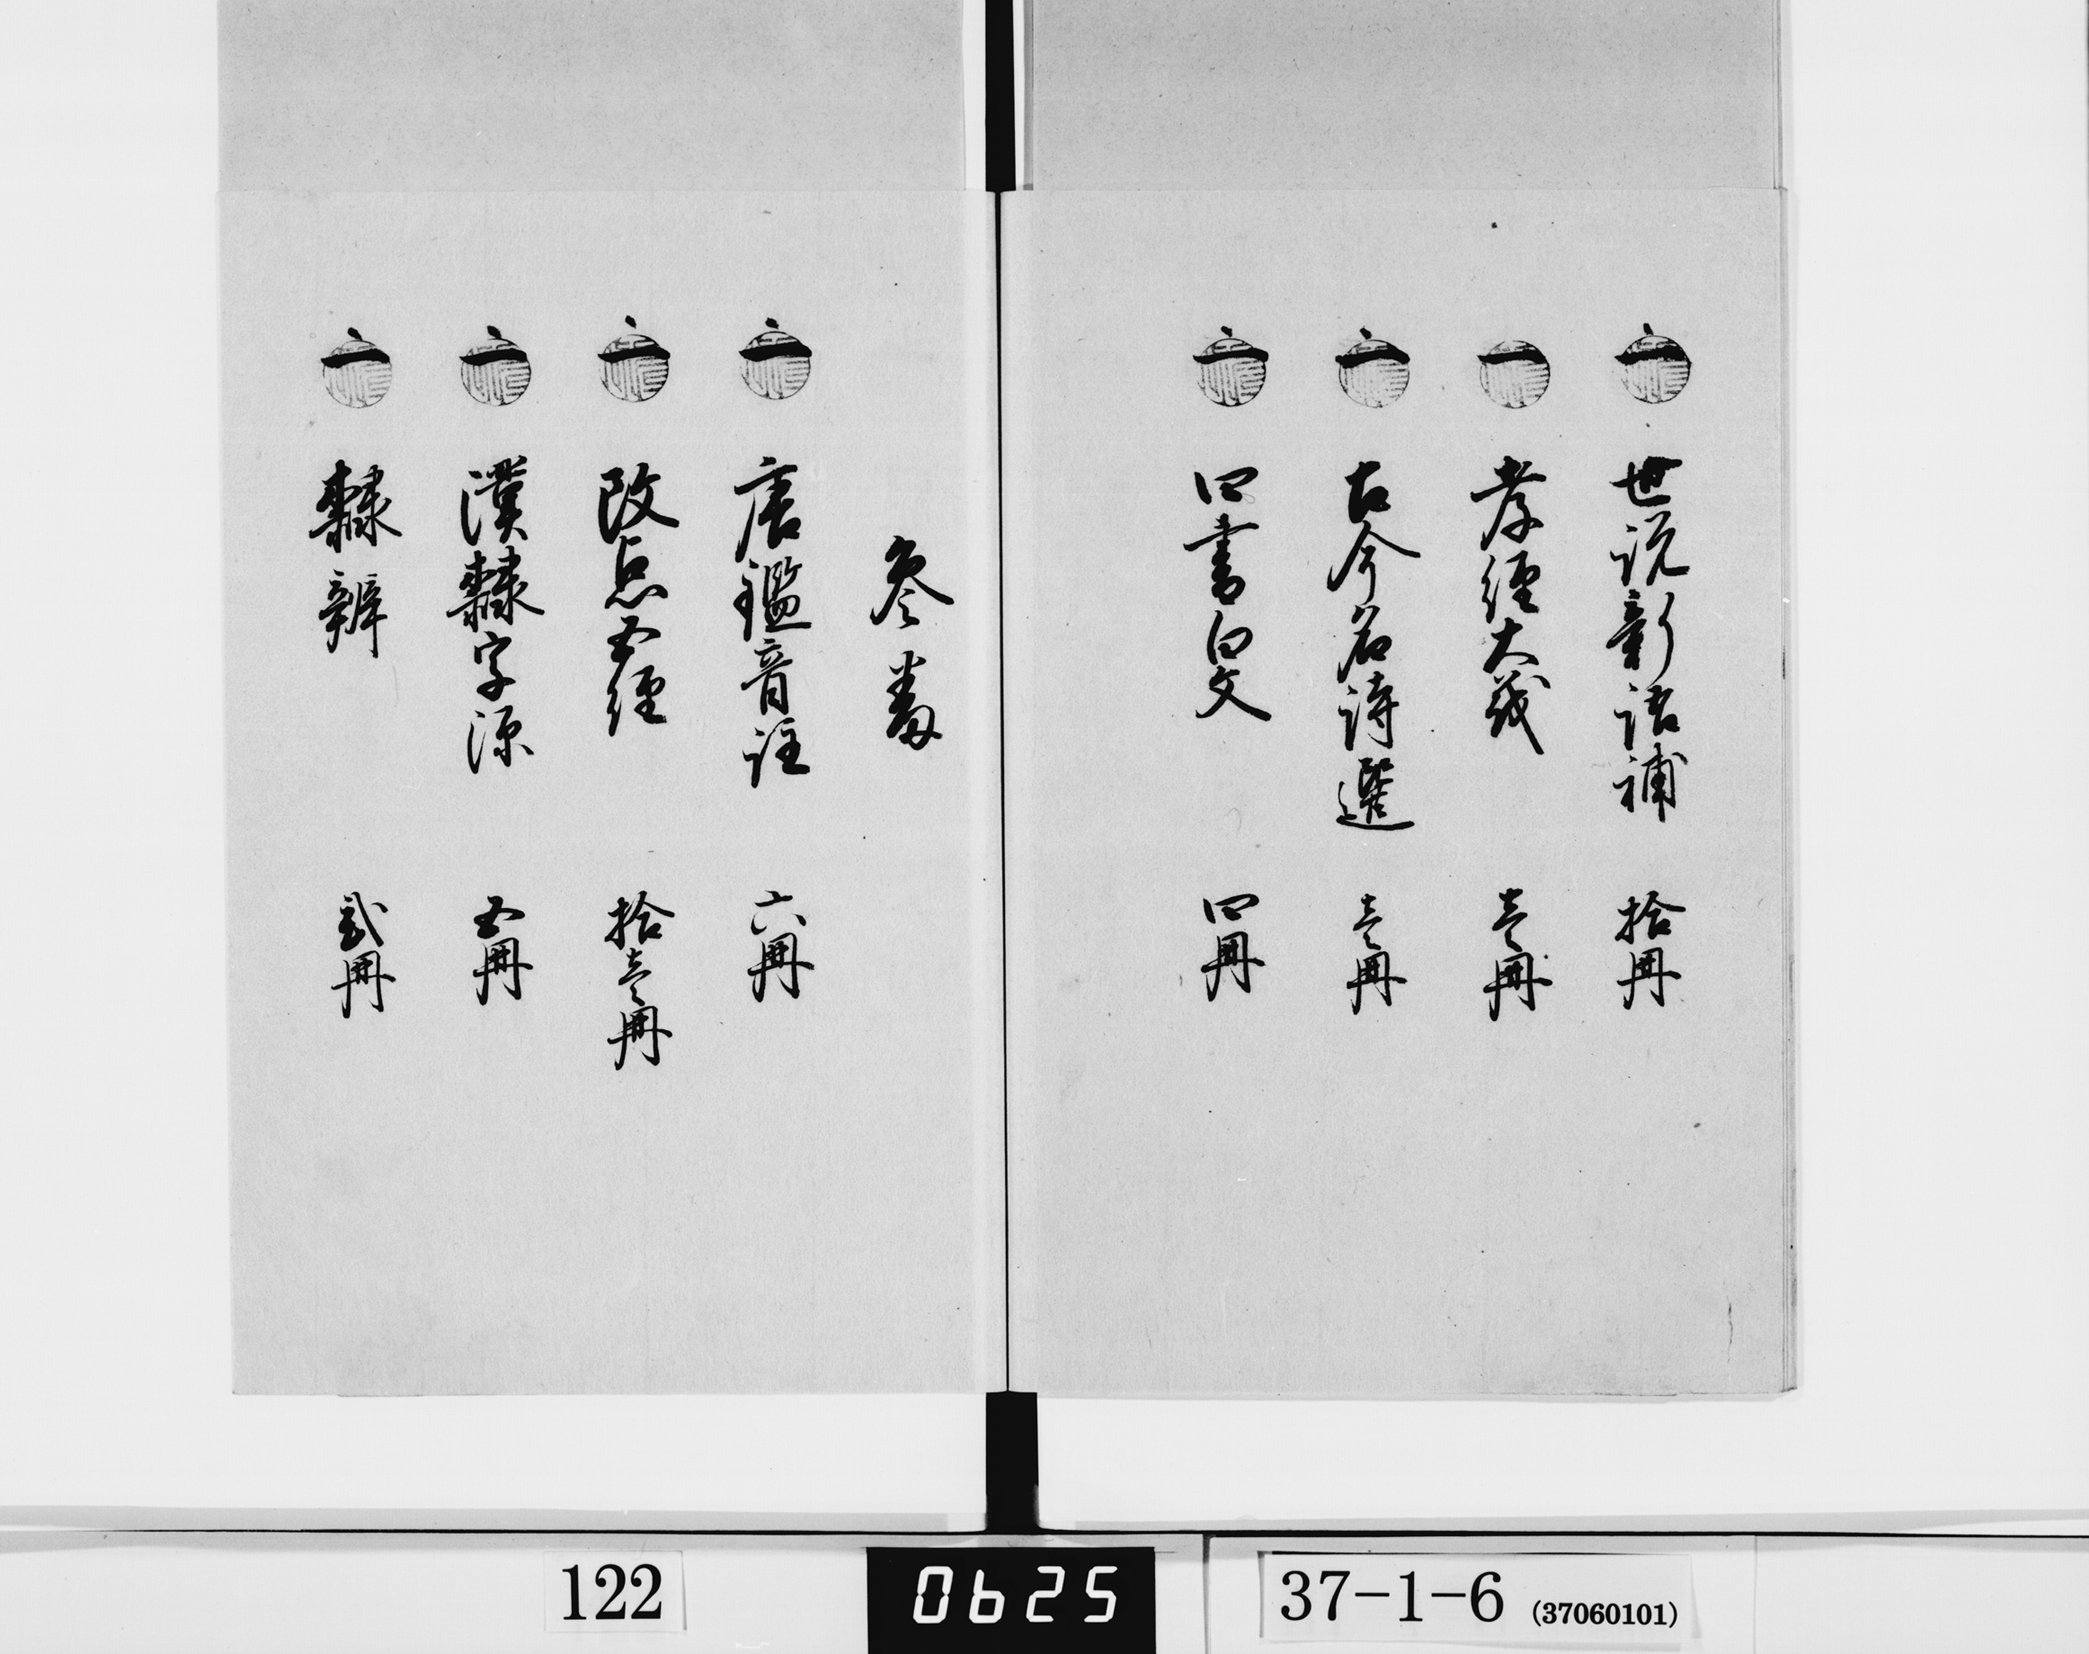 一 世説新語補 拾冊
一 孝経大義 壱冊
一 古今名詩選 壱冊
一 四書白文 四冊
参番
一 唐鑑音註 六冊
一 改点五経 拾壱冊
一 漢隷字源 五冊
一 隷辨 弐冊
122
0625
37-1-6 (37060101)